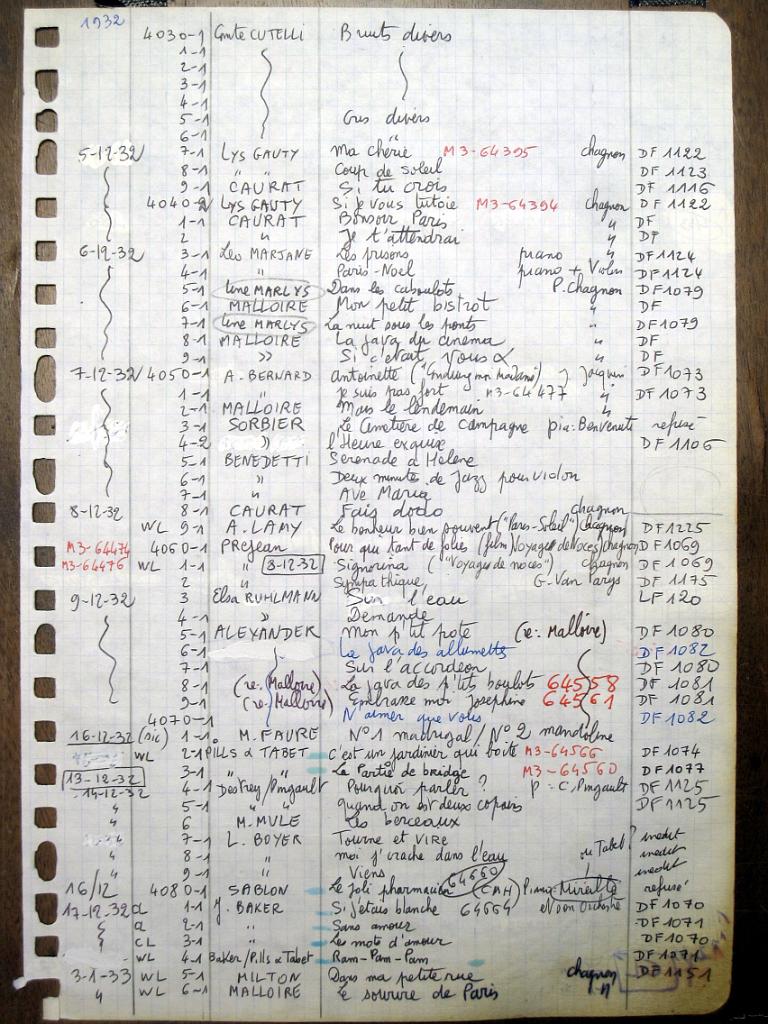 1932 4030-1 Comte CUTELLI Bruits divers
1-1
2-1
3-1
4-1
5-1 Cris divers
6-1 "
5-12-32 7-1 LYS GAUTY Ma chérie M3-64395 Chagnon DF 1122
8-1 " " Coup de soleil DF 1123
9-1 CAURAT Si tu crois DF 1116
4040-2 LYS GAUTY Si je vous tutoie M3-64394 Chagnon DF 1122
1-1 CAURAT Bonsoir Paris " DF
2 " Je t'attendrai " DF
6-12-32 3-1 Léo MARJANE Les prisons piano " DF 1124
4-1 " Paris-Noel piano + Violon DF 1124
5-1 Line MARLYS Dans les caboulots P. Chagnon DF 1079
6-1 MALLOIRE Mon petit bistrot " DF
7-1 Line MARLYS La nuit sous les ponts " DF 1079
8-1 MALLOIRE La java du cinema " DF
9-1 " Si c'était vous " DF
7-12-32 4050-1 A. BERNARD Antoinette Jacquin DF 1073
1-1 " Je suis pas fort M3-64477 " DF 1073
2-1 MALLOIRE Mais le lendemain "
3-1 SORBIER Le Cimetière de campagne pia: Benvenuti refusé
4-2 " l'Heure exquise DF 1106
5-1 BENEDETTI Serenade a Helene
6-1 " Deux minutes de Jazz pour violon
7-1 " Ave Maria
8-12-32 8-1 CAURAT Fais dodo chagnon
WL 9-1 A. LAMY Le bonheur bien souvent ("Paris-Soleil") chagnon DF 1225
M3-64474 4060-1 PREJean Pour qui tant de folies (film) Voyage de Noces) chagnon DF 1069
M3-64476 WL 1-1 " 8-12-32 Signorina ("Voyage de noces") chagnon DF 1069
2 " Sympathique, G. Van Parys DF 1175
9-12-32 3 Elsa RUHLMANN Sur l'eau LF 120
4-1 " Demande
5-1 ALEXANDER Mon p'tit pote (re: Malloire) DF 1080
6-1 La java des allumettes DF 1082
7-1 Sur l'accordeon DF 1080
8-1 (re: Malloire) La java des p'tits boulots 64558 DF 1081
9-1 (re: Malloire) Embrasse moi Josephine 64561 DF 1081
4070-1 N'aimer que vous DF 1082
16-12-32 (sic) 1-1 M. FAURE N°1 madrigal / N°2 mandoline
WL 2-1 PILLS & TABET C'est un jardinier qui boite M3-64566 DF 1074
13-12-32 3-1 " " La Partie de bridge M3-64560 DF 1077
14-12-32 4-1 Destrey/Pingault Pourquoi parler? p = C. Pingault DF 1125
" 5-1 " " quand on est deux copains DF 1125
" 6 M. MULE Les berceaux
" 7-1 L. BOYER Tourne et VIRE ou Tabet? inedit
" 8-1 " moi j'crache dans l'eau inedit
" 9-1 " Viens inedit
16/12 4080-1 SABLON Le joli pharmacien 64660 (CAH) Piano: Mireille refusé
17-12-32 a 1-1 J. BAKER Si j'étais blanche 64664 et son Orchestre DF 1070
a 2-1 " Sans amour DF 1071
CL 3-1 " Les mots d'amour DF 1070
WL 4-1 Baker/Pills & Tabet Ram-Pam-Pam DF 1071
3-1-33 WL 5-1 MILTON Dans ma petite rue chagnon DF 1151
" WL 6-1 MALLOIRE Le sourire de Paris "